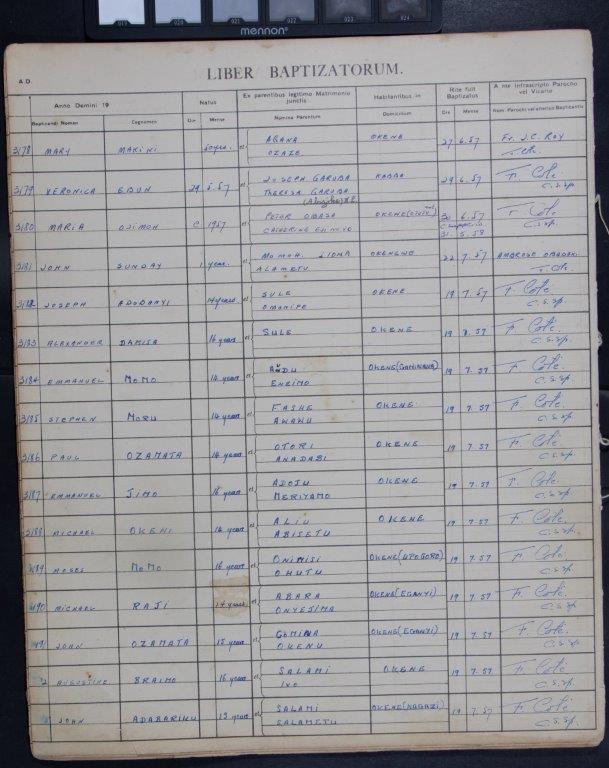 021 022 023 024
mennon
LIBER BAPTIZATORUM.
A.D.
Anno Domini 19 Natus Ex parentibus legitimo Matrimonio junctis Habitantibus in Rite fuit Baptizatus A me infrascripto Parocho vel Vicario
Baptizandi Nomen Cognomen Die Mense Nomina Parentum Domicilium Die Mense Nom. Parochi vel alterius Baptizantis
3178 MARY MAKINI 50 yrs. et AGANA OKENE 27 6.57 Fr. J.C. ROY
OZAZE
3179 VERONICA EBUN 29 5.57 et JOSEPH GARUBA KABBA 29 6.57 F. Cote.
THERESA GARUBA C.S.Sp.
3180 MARIA OJIMOH C 1957 et PETER OBASA OKENE 30 6.57 F. Cote
CATHERINE 31. 5.58 C.S.Sp.
3181 JOHN SUNDAY 1 year. et MOMOH OKENGWE 22 7.57 AMBROSE
ALAMETU F. Cote.
3182 JOSEPH ADOBANYI 14 years et SULE OKENE 19 7.57 F. Cote.
OMONIPE C.S.Sp.
3183 ALEXANDER DAMISA 16 years et SULE OKENE 19 7.57 F. Cote.
C.S.Sp.
3184 EMMANUEL MOMO 14 years et AUDU OKENE 19 7.57 F. Cote.
ENEIMO C.S.Sp.
3185 STEPHEN MORU 14 years et FASHE OKENE 19 7.57 F. Cote.
AWAWU C.S.Sp.
3186 PAUL OZAMATA 14 years et OTORI OKENE 19 7.57 F. Cote.
ANADABI C.S.Sp.
3187 EMMANUEL JIMO 16 years et ADOJU OKENE 19 7.57 F. Cote.
MERIYAMO C.S.Sp.
3188 MICHAEL OKEHI 16 years et ALIU OKENE 19 7.57 F. Cote.
ABISETU C.S.Sp.
3189 MOSES MOMO 16 years et ONIMISI OKENE (UPOGORO) 19 7.57 F. Cote.
OHUTU C.S.Sp.
3190 MICHAEL RAJI 14 years et ABARA OKENE (EGANYI) 19 7.57 F. Cote.
ONYEJIMA C.S.Sp.
JOHN OZAMATA 15 years et OKENE (EGANYI) 19 7.57 F. Cote.
OKENU C.S.Sp.
AUGUSTINE BRAIMO 16 years et SALAMI OKENE 19 7.57 F. Cote.
IVO C.S.Sp.
JOHN ADABARIKU 15 years et SALAMI OKENE (NAGAZI) 19 7.57 F. Cote.
SALAMETU C.S.Sp.